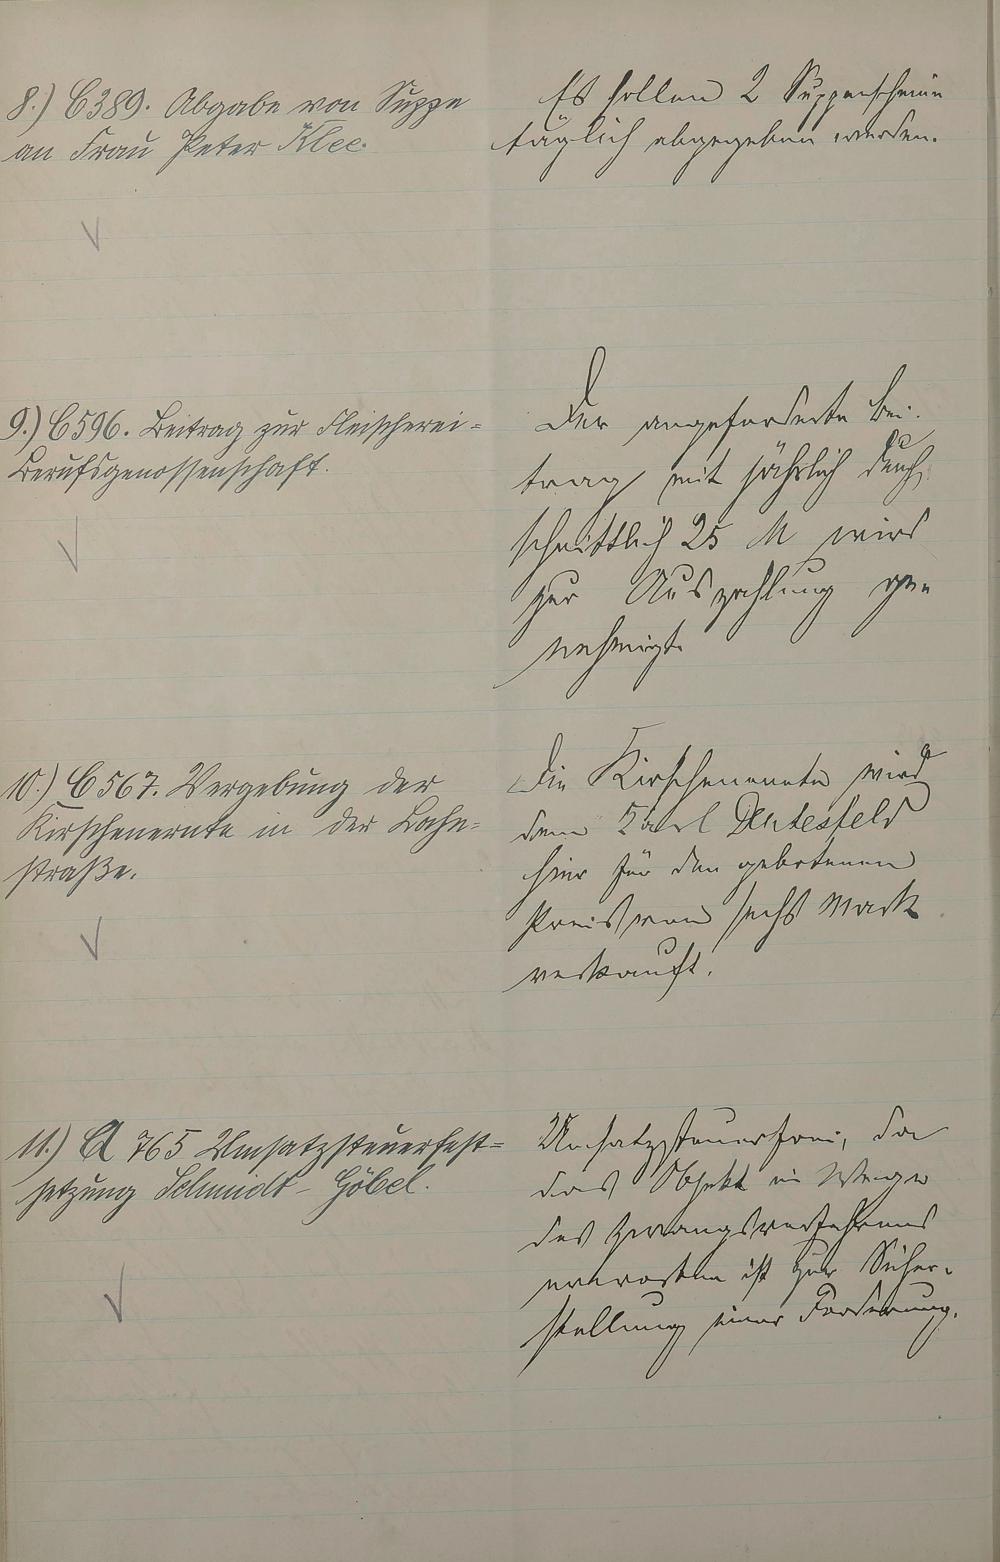 8.) C 389. Abgabe von Suppe
an Frau Peter Klee.
Es sollen 2 Suppenscheine
täglich abgegeben werden.
9.) C 596. Beitrag zur Fleischerei-
Berufsgenossenschaft.
Der angeforderte Bei-
trag mit jährlich durch
schnittlich 25 M wird
zur Auszahlung ge-
nehmigt.
10.) C 567. Vergebung der
Kirschenernte in der Bahn-
straße.
Die Kirschenernte wird
dem Karl
hier für den gebotenen
Preis von sechs Mark
verkauft.
11.) A 765 Umsatzsteuerfest-
setzung Schmidt-Göbel.
Umsatzsteuerfrei, da
das Objekt im Wege
des Zwangsverfahrens
erworben ist zur Sicher-
stellung einer Forderung.